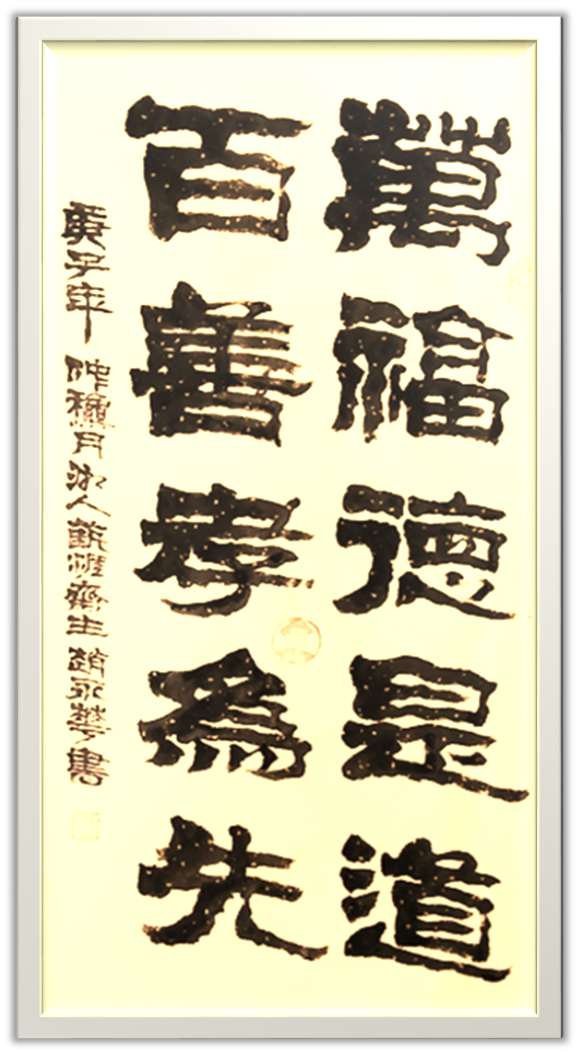 萬福德是道
百善孝為先
庚子年 仲穐月沐人觀涯齋主趙永華書